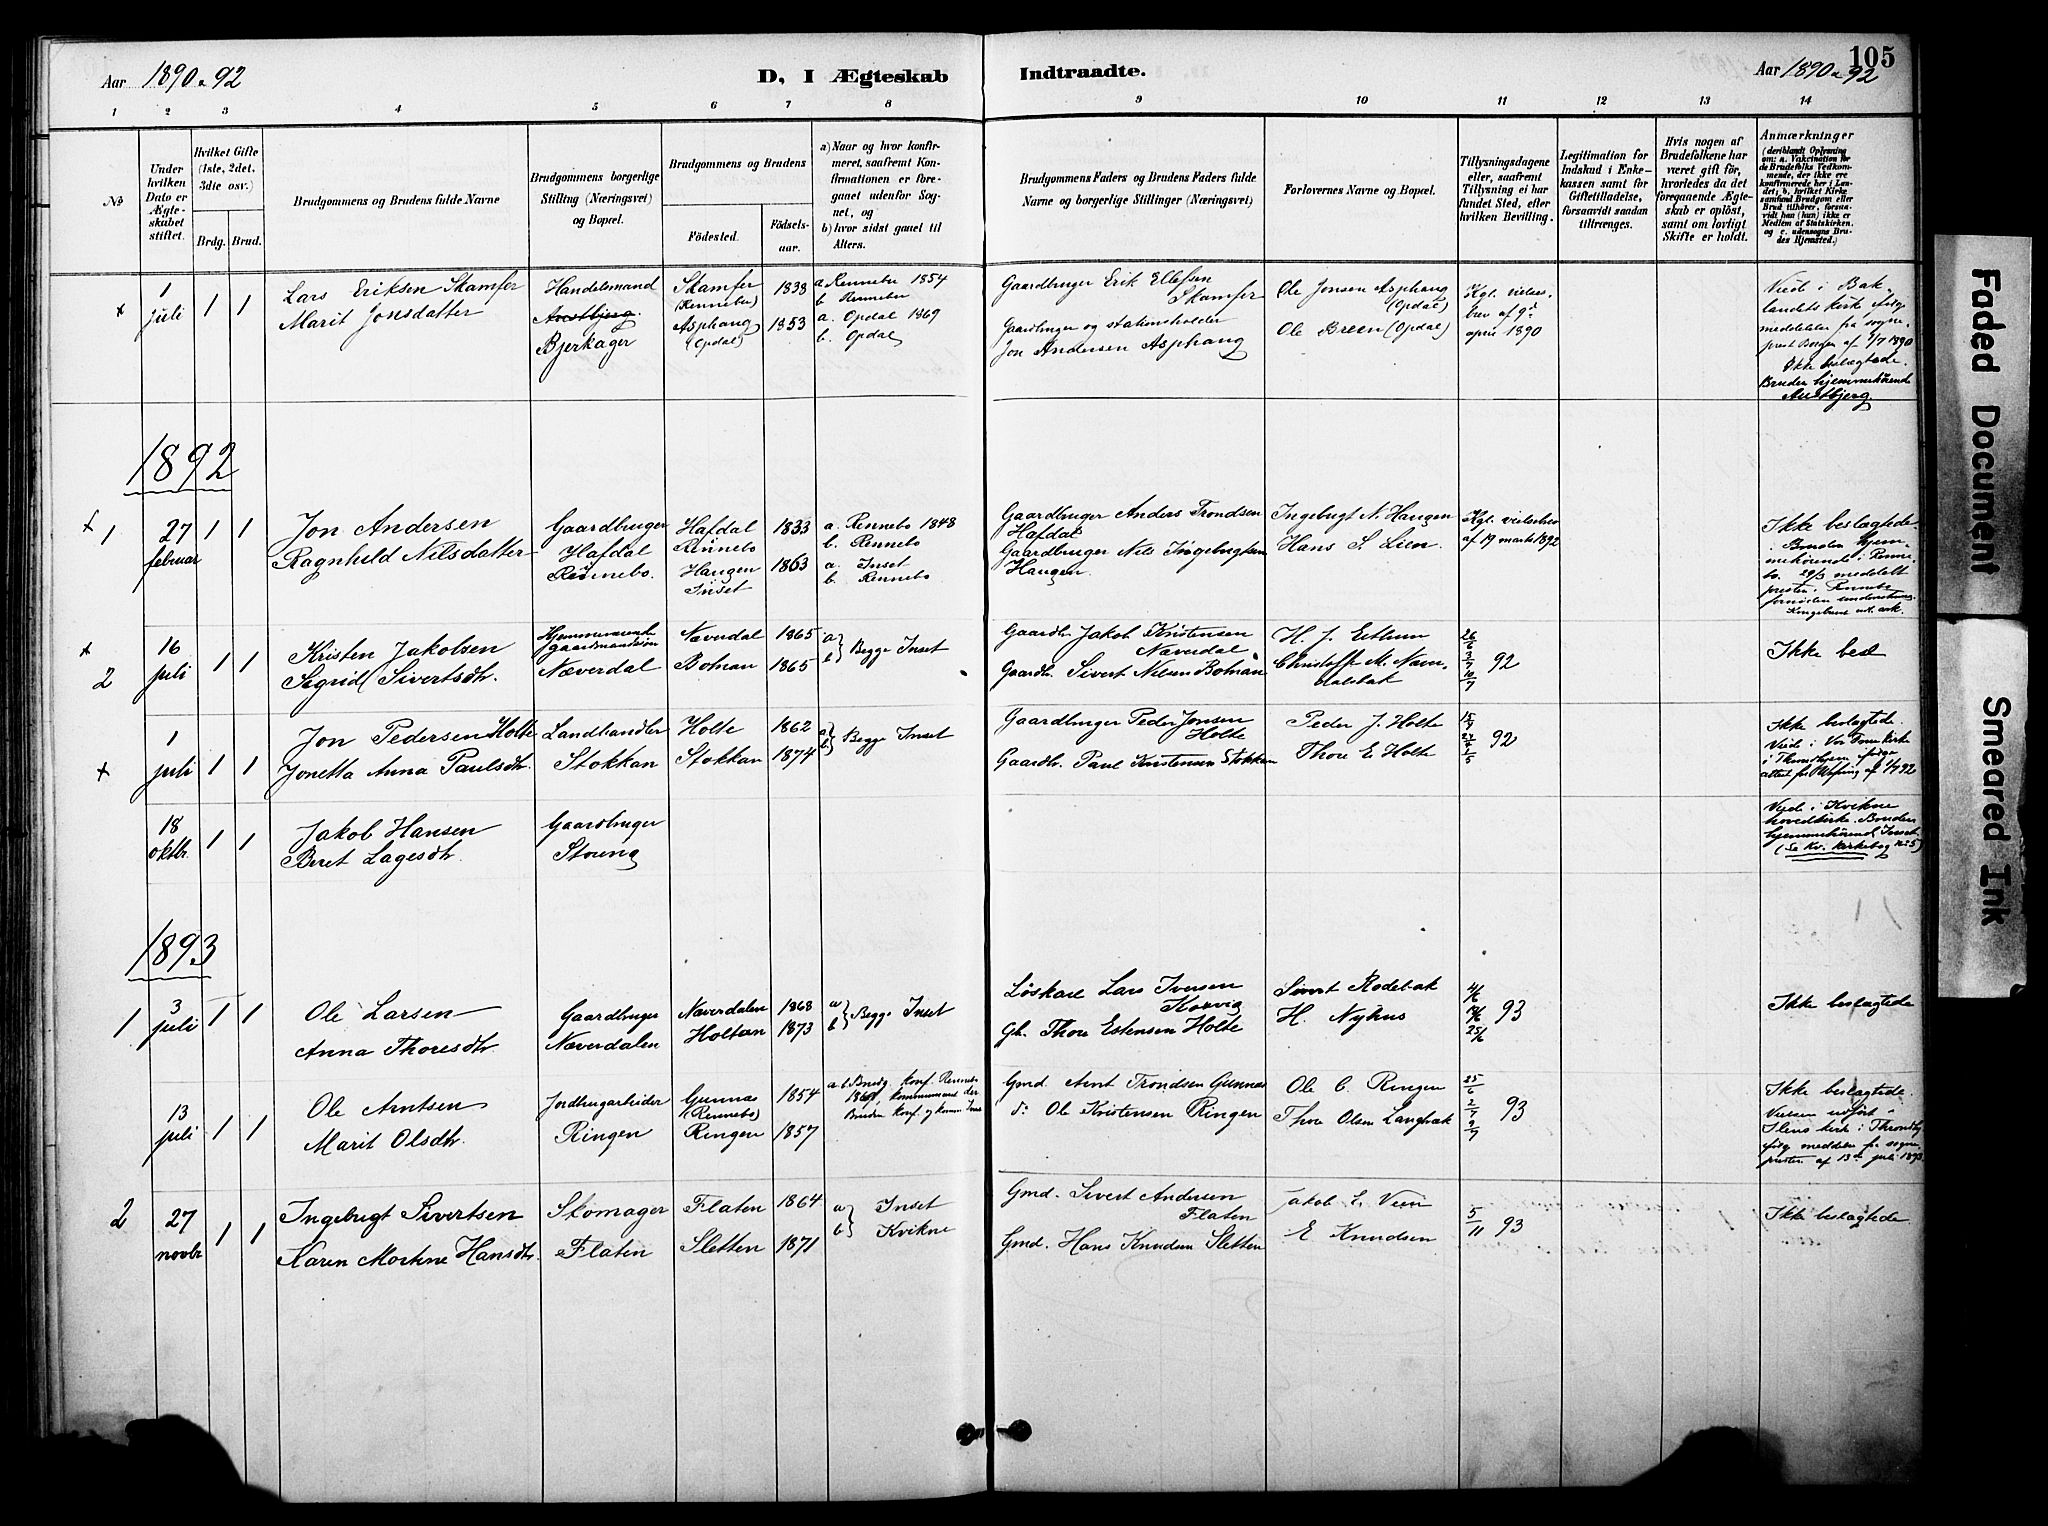 105
Aar 1890 & 92
D, I Ægteskab Indtraadte.
Aar 1890 & 92
1 2 3 4 5 6 7 8 9 10 11 12 13 14
No
Under hvilken Dato er Ægteskabet stiftet.
Hvilket Gifte (1ste, 2det, 3die osv.)
Brdg. Brud.
Brudgommens og Brudens fulde Navne
Brudgommens borgerlige Stilling (Næringsvei) og Bopæl.
Brudgommens og Brudens
Fødested. Fødselsaar.
a) Naar og hvor konfirmeret, saafremt Konfirmationen er foregaaet udenfor Sognet, og
b) hvor sidst gaaet til Alters.
Brudgommens Faders og Brudens Faders fulde Navne og borgerlige Stillinger (Næringsvei)
Forlovernes Navne og Bopæl.
Tillysningsdagene eller, saafremt Tillysning ei har fundet Sted, efter hvilken Bevilling.
Legitimation for Indskud i Enkekassen samt for Giftetilladelse, forsaavidt saadan tiltrænges.
Hvis nogen af Brudefolkene har været gift før, hvorledes da det foregaaende Ægteskab er opløst, samt om lovligt Skifte er holdt.
Anmærkninger (deriblandt Oplysning om: a. Vakcination for de Brudefolks Vedkommende, der ikke ere konfirmerede her i Landet; b. hvilket Kirkesamfund Brudgom eller Brud tilhører, forsaavidt han (hun) ikke er Medlem af Statskirken, og c. udensogns Brudes Hjemsted.)
x 1 juli 1 1
Lars Eriksen Skamfer
Marit Jonsdatter
Handelsmand
Austbjerg
Bjerkager
Skamfer (Rennebu) 1838
Asphaug (Opdal) 1853
a Rennebu 1854
b Rennebu
a. Opdal 1869
b. Opdal
Gaardbruger Erik Ellefsen Skamfer
Gaardbruger og stationsholder
Jon Andersen Asphaug
Ole Jonsen Asphaug (Opdal)
Ole Breen (Opdal)
Kgl. vielsesbrev af 9de april 1890
Viede i Baklandets kirke ifølge meddelelse fra sogneprest af 1/7 1890
Ikke beslægtede.
Bruden hjemmehørende Austbjerg
1892
1 27 februar 1 1
Jon Andersen
Ragnhild Nilsdatter
Gaardbruger
Hafdal
Rennebo.
Hafdal Rennebo 1833
Haugen Inset 1863
a. Rennebo 1848
b. Rennebo
a. Inset
b. Rennebo
Gaardbruger Anders Trondsen Hafdal
Gaardbruger Nils Ingebrigtsen Haugen.
Ingebrigt N. Haugen
Hans S. Lien.
Kgl. vielsesbrev af 19 marts 1892
Ikke beslægtede.
Bruden hjemmehørende i Rennebo. 29/3 meddelt presten i Rennebo
x 2 16 juli 1 1
Kristen Jakobsen
Sigrid Sivertsdtr.
Hjemmeværende gaardmandssøn
Næverdal
Næverdal 1865
Botnan 1865
a) b) Begge Inset
Gaardbr. Jakob Kristensen Næverdal
Gaardbr. Sivert Nilsen Botnan
H. J. Esthun
Christoff M. Næverdalsbak
26/6 3/7 10/7 92
Ikke besl
x 1 juli 1 1
Jon Pedersen Holte
Jonetta Anna Paulsdtr.
Landhandler
Stokkan
Holte 1862
Stokkan 1874
a) b) Begge Inset
Gaardbruger Peder Jonsen Holte
Gaardbr. Paul Kristensen Stokkan
Peder J. Holte
Thore E. Holte
92
Ikke beslægtede.
Viede i Vor Frue kirke i Throndhjem, ifølge attest
18 oktbr. 1 1
Jakob Hansen
Beret Lagesdtr.
Gaardbruger
Stueng
Viede i Kvikne hovedkirke. Bruden hjemmehørende Inset
(Se Kv. kirkebog No 5)
1893
1 3 juli 1 1
Ole Larsen
Anna Thoresdtr.
Gaardbruger
Næverdalen
Næverdalen 1868
Holtan 1873
a) b) Begge Inset
Løskare Lars Iversen
Gb. Thore Estensen Holte
Sivert Rodebak
H. Nyhus
4/6 18/6 25/6 93
Ikke beslægtede
13 juli 1 1
Ole Arntsen
Marit Olsdtr.
Jordbrugarbeider
Ringen
Gunnas (Rennebo) 1854
Ringen 1857
a b Brudg. konf. Rennebo, kommunicerende der
Bruden konf. og komm. Inset
Gmd. Arnt Trondsen Gunnas
do Ole Kristensen Ringen
Ole C. Ringen
Thore Olsen Langbak
25/6 2/7 9/7 93
Ikke beslægtede.
Vielsen udført i Ilens kirke i Throndhj. ifølg meddelse fra sognepresten af 13de juli 1893.
2 27 novbr 1 1
Ingebrigt Sivertsen
Karen Mortine Hansdtr.
Skomager
Flaten
Flaten 1864
Sletten 1871
a) Inset
b) Kvikne
Gmd. Sivert Andersen Flaten
Gmd. Hans Knudsen Sletten
Jakob E. Veen
E Knudsen
5/11 93
Ikke beslægtede
Faded Document
Smeared Ink